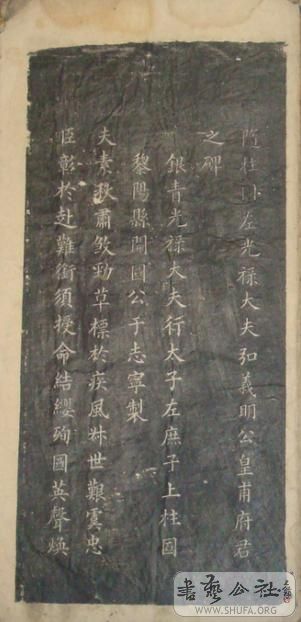 隨柱國左光祿大夫弘義明公皇甫府君
之碑
銀青光祿大夫行太子左庶子上柱國
黎陽縣開國公于志寧製
夫素秋肅煞勁草標於疾風叔世艱虞忠
臣彰於赴難銜須授命結纓殉國英聲煥
書藝公社
WWW.SHUFA.ORG